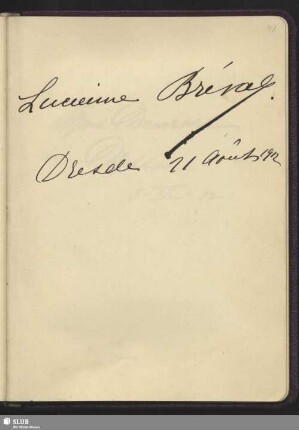 Lucienne Bréval.
Dresde 21 Août 1912
SLUB